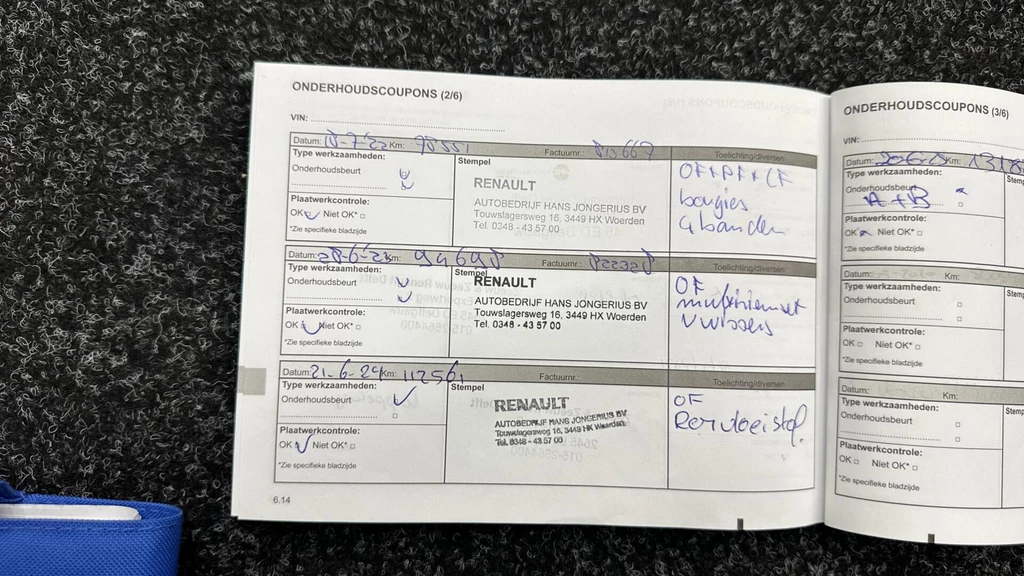 ONDERHOUDSCOUPONS (2/6)
VIN:
Datum: Km: Factuurnr.: Toelichting/diversen
Type werkzaamheden: Stempel OF+PF+CF
Onderhoudsbeurt RENAULT bougies
AUTOBEDRIJF HANS JONGERIUS BV 4 banden
Plaatwerkcontrole: Touwslagersweg 16, 3449 HX Woerden
OK Niet OK* Tel. 0348 - 43 57 00
*Zie specifieke bladzijde
Datum: 28-6-23 Km: 94698 Factuurnr.: Toelichting/diversen
Type werkzaamheden: Stempel OF
Onderhoudsbeurt RENAULT multiriemset
AUTOBEDRIJF HANS JONGERIUS BV vwissers
Plaatwerkcontrole: Touwslagersweg 16, 3449 HX Woerden
OK Niet OK* Tel. 0348 - 43 57 00
*Zie specifieke bladzijde
Datum: 21-6-24 Km: 112561 Factuurnr.: Toelichting/diversen
Type werkzaamheden: Stempel OF
Onderhoudsbeurt RENAULT Remvloeistof.
AUTOBEDRIJF HANS JONGERIUS BV
Plaatwerkcontrole: Touwslagersweg 16, 3449 HX Woerden
OK Niet OK* Tel. 0348 - 43 57 00
*Zie specifieke bladzijde
6.14
ONDERHOUDSCOUPONS (3/6)
VIN:
Datum: Km:
Type werkzaamheden:
Onderhoudsbeurt
A+B
Plaatwerkcontrole:
OK Niet OK*
*Zie specifieke bladzijde
Datum: Km:
Type werkzaamheden:
Onderhoudsbeurt
Plaatwerkcontrole:
OK Niet OK*
*Zie specifieke bladzijde
Datum: Km:
Type werkzaamheden:
Onderhoudsbeurt
Plaatwerkcontrole:
OK Niet OK*
*Zie specifieke bladzijde